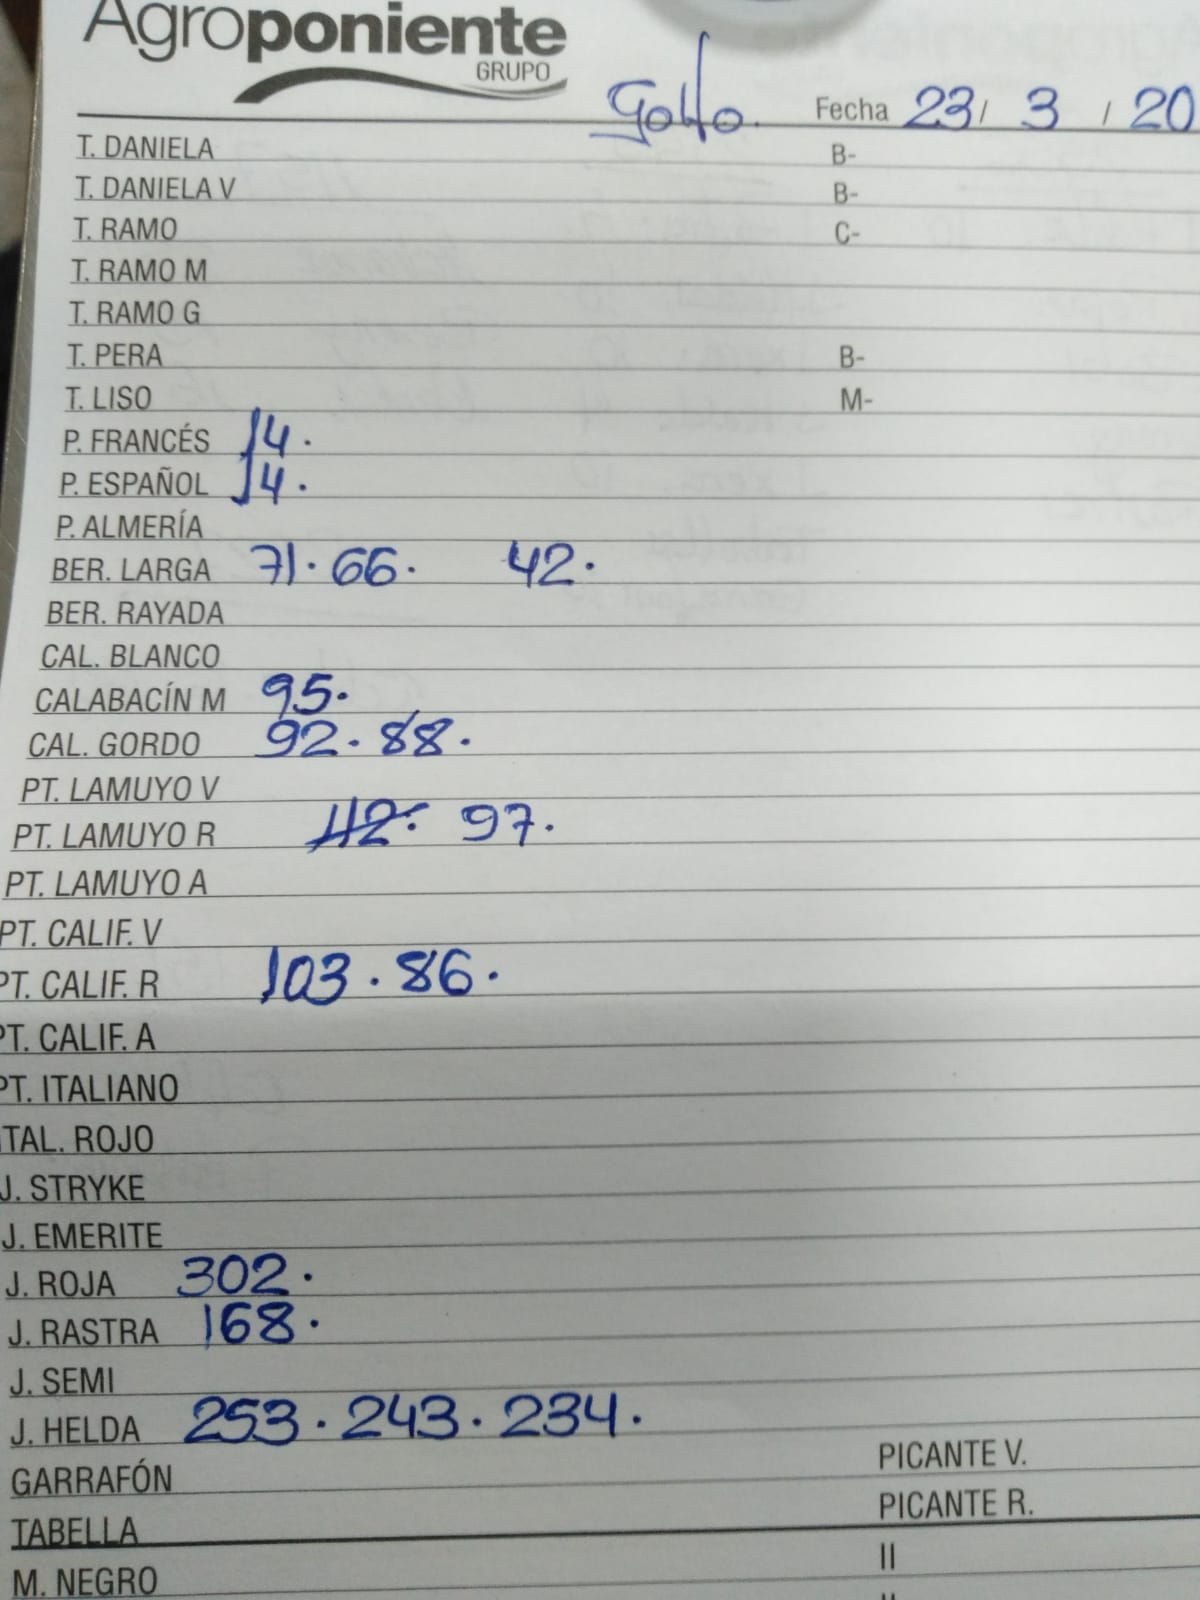 Agroponiente
GRUPO
Golfo. Fecha 23/ 3 / 20
T. DANIELA B-
T. DANIELA V B-
T. RAMO C-
T. RAMO M
T. RAMO G
T. PERA B-
T. LISO M-
P. FRANCÉS 14.
P. ESPAÑOL 14.
P. ALMERÍA
BER. LARGA 71. 66. 42.
BER. RAYADA
CAL. BLANCO
CALABACÍN M 95.
CAL. GORDO 92. 88.
PT. LAMUYO V
PT. LAMUYO R 42. 97.
PT. LAMUYO A
PT. CALIF. V
PT. CALIF. R 103. 86.
PT. CALIF. A
PT. ITALIANO
ITAL. ROJO
J. STRYKE
J. EMERITE
J. ROJA 302.
J. RASTRA 168.
J. SEMI
J. HELDA 253. 243. 234.
GARRAFÓN PICANTE V.
TABELLA PICANTE R.
M. NEGRO II